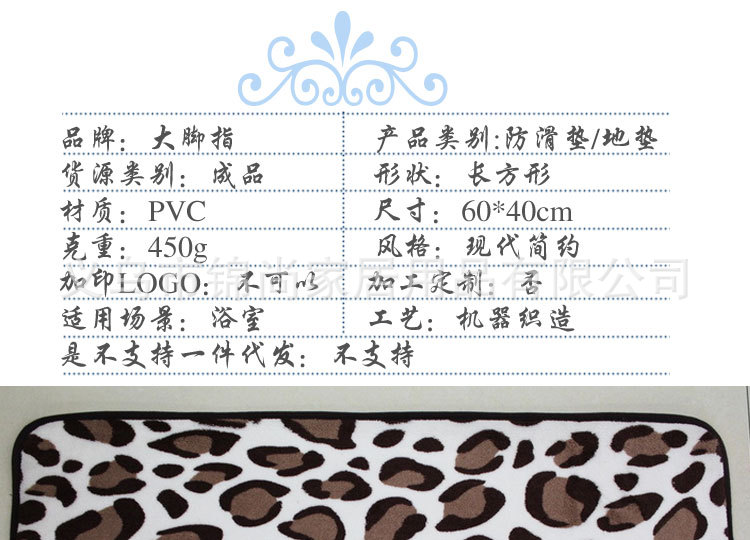 品牌：大脚指 产品类别:防滑垫/地垫
货源类别：成品 形状：长方形
材质：PVC 尺寸：60*40cm
克重：450g 风格：现代简约
加印LOGO：不可以 加工定制：否
义乌市锦尚家居用品有限公司
适用场景：浴室 工艺：机器织造
是不支持一件代发：不支持